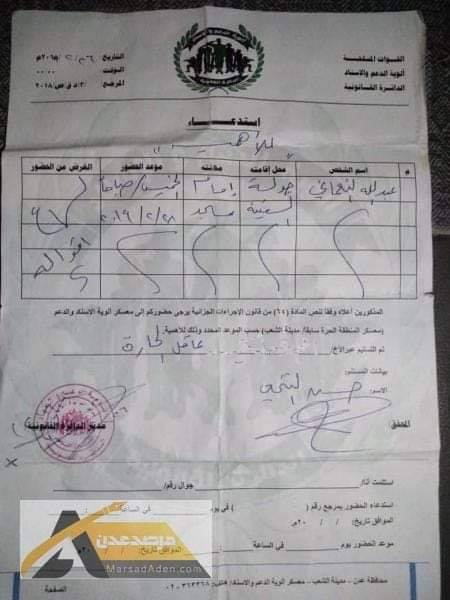 القوات المشتركة
ألوية الدعم والاسناد
الدائرة القانونية
التاريخ
الوقت: ٠٠.٠٠
المرجع
استدعاء
للأهمية
م
اسم الشخص
محل إقامته
مكانته
موعد الحضور
الغرض من الحضور
عبدالله
جولة
إمام
الخميس/صباحاً
السفينة
مسجد
٢٠١٩/٢/٢٨
أقواله
المذكورين أعلاه وفقا لنص المادة (٦٤) من قانون الإجراءات الجزائية يرجى حضوركم إلى معسكر ألوية الاسناد والدعم
(معسكر المنطقة الحرة سابقا/ مدينة الشعب) حسب الموعد المحدد وذلك للأهمية.
تم التسليم عبر/الأخ
عاقل الحارة
بيانات المستلم:
الاسم:
المحقق
مدير الدائرة القانونية
استلمت أنا/
جوال رقم/
استدعاء الحضور بمرجع رقم ( ) في يوم
في الساعة
الموافق تاريخ: / / ٢٠م
موعد الحضور يوم
في الساعة
الموافق تاريخ: / /
محافظة عدن – مدينة الشعب – معسكر ألوية الدعم والاسناد
الصفحة
مرصد عدن
MarsadAden.com